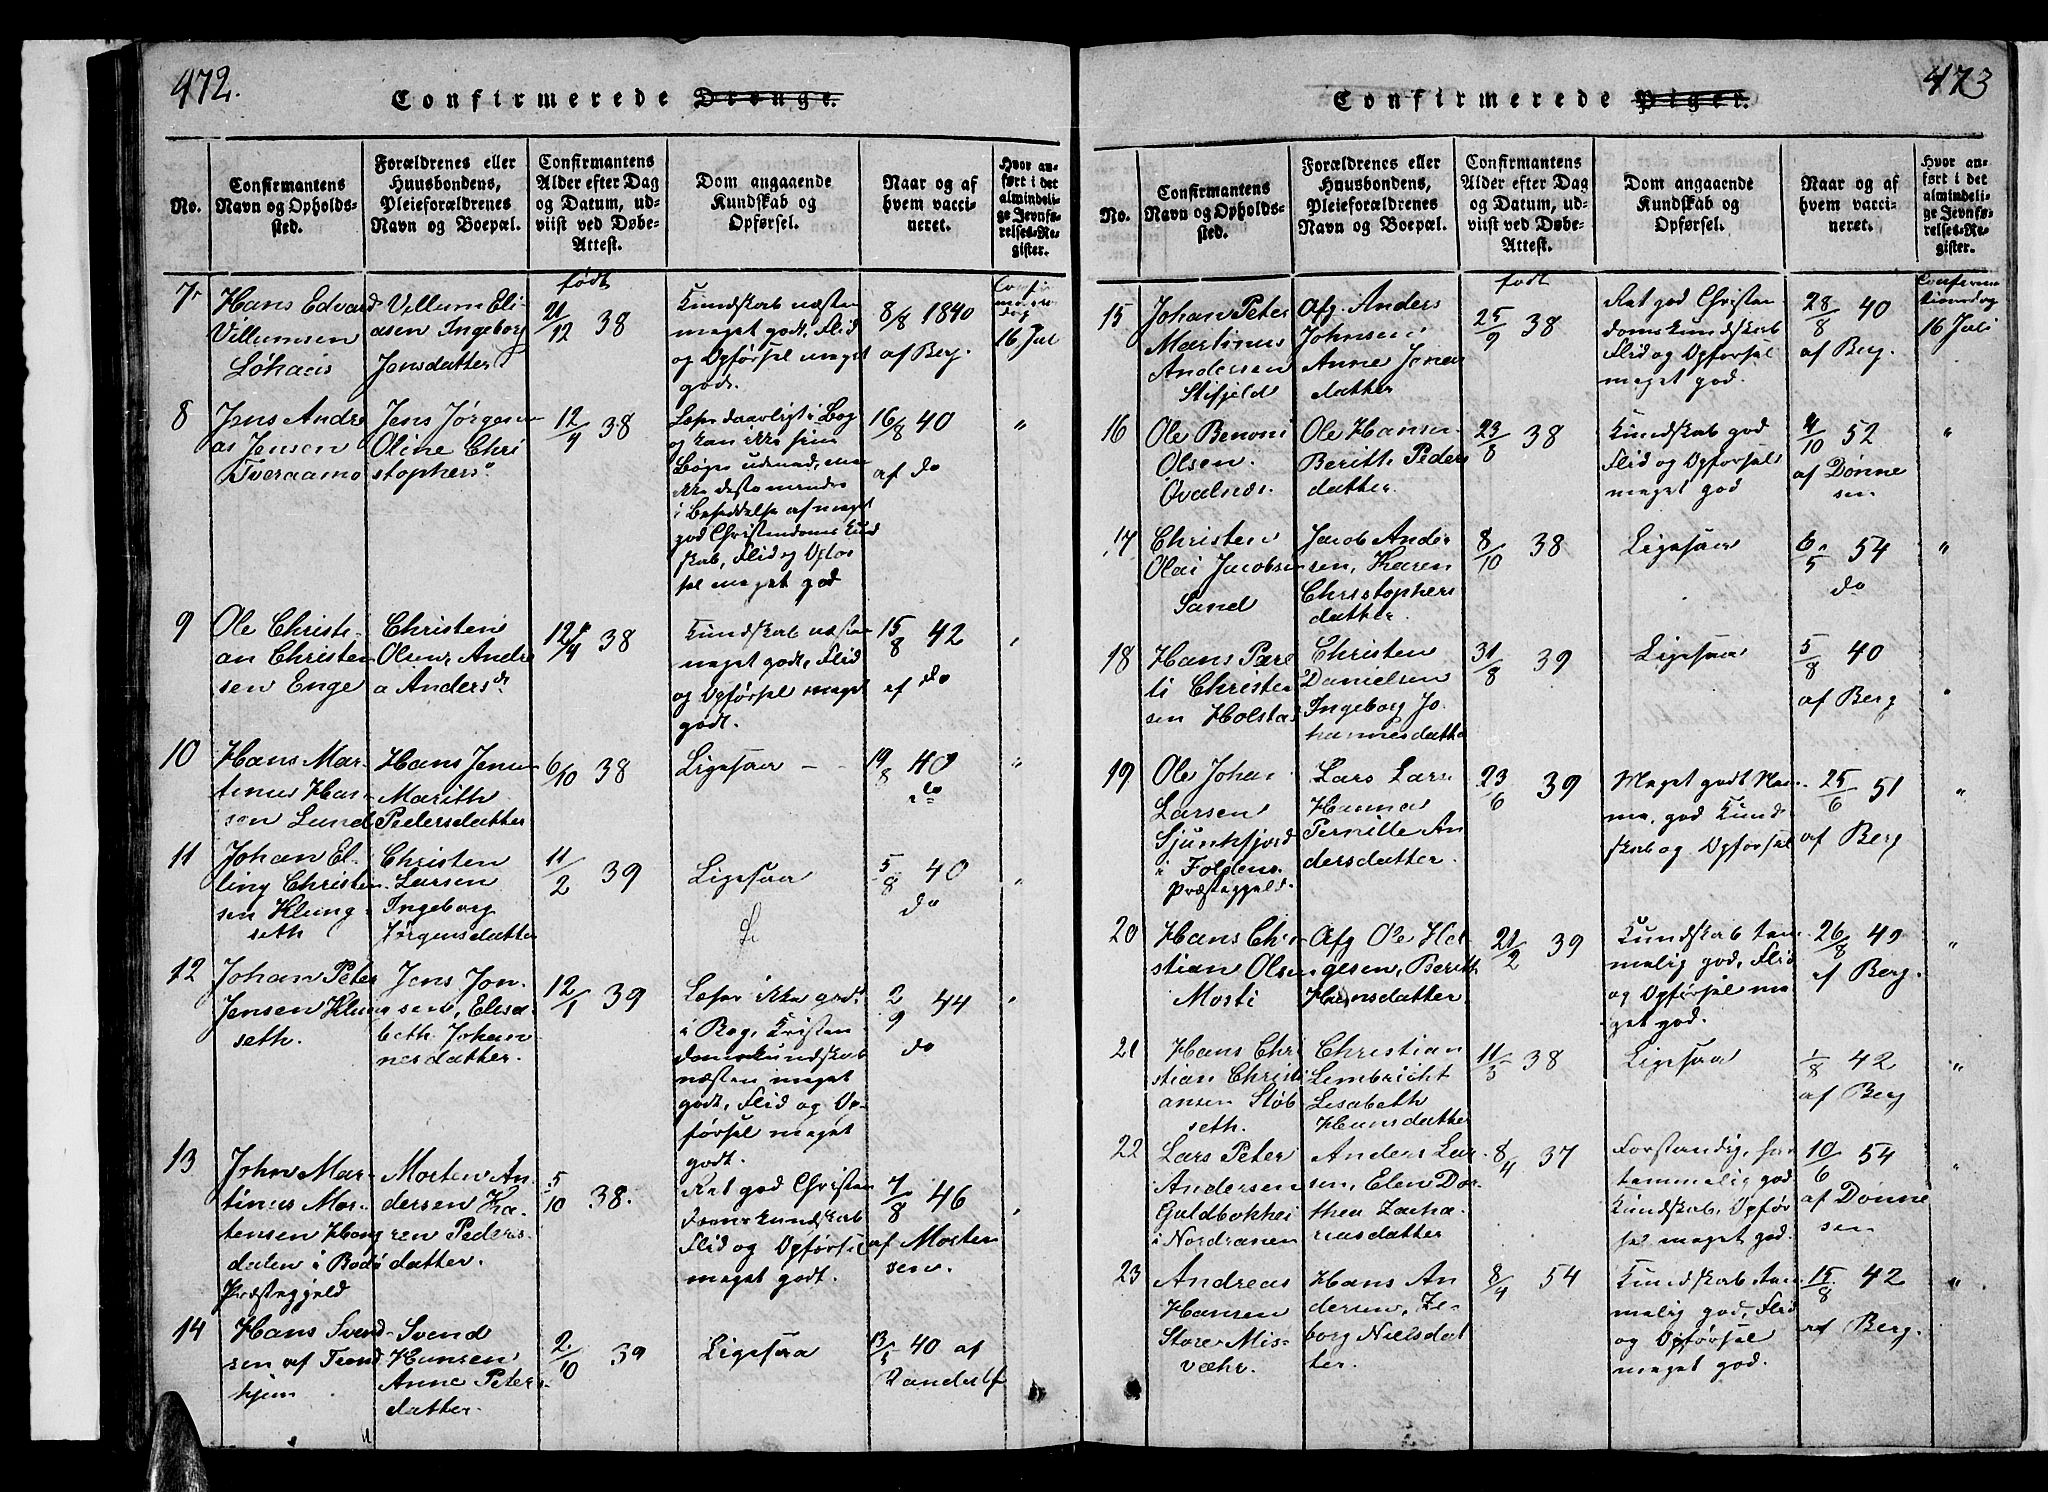 472.
Confirmerede Drenge.
No.
Confirmantens
Navn og Opholds-
sted.
Forældrenes eller
Huusbondens,
Pleieforældrenes
Navn og Boepæl.
Confirmantens
Alder efter Dag
og Datum, ud-
viist ved Døbe-
Attest.
Dom angaaende
Kundskab og
Opførsel.
Naar og af
hvem vacci-
neret.
Hvor an-
ført i det
almindeli-
ge Jevnfø-
relses-Re-
gister.
7
Hans Edvard
Villumsen
Løhaug
Villum Eli-
asen Ingeborg
Jensdatter
født
21/12 38
Kundskab næsten
meget godt, Flid
og Opførsel meget
godt.
8/8 1840
af Berg.
16 Jul
8
Jens Andre
as Jensen
Tveraamo
Jens Jørgensen
Oline Chri
stophers
12/4 38
Læser daarligt i Bog
og kan ikke sine
Bøger udenad, men
ikke desto mindre
i Besiddelse af meget
god Christendoms Kund
skab, Flid og Opfør
sel meget god
16/8 40
af do
"
9
Ole Christi-
an Christen
sen Enge
Christen
Olsen, Andre
a Andersd.
12/4 38
Kundskab næsten
meget godt, Flid
og Opførsel meget
godt.
15/8 42
af do
"
10
Hans Mar-
tinus Han-
sen Lund
Hans Jensen
Marith
Pedersdatter
6/10 38
Ligesaa -
19/8 40
do
"
11
Johan El-
ling Christen
sen Klung-
seth
Christen
Larsen
Ingeborg
Jørgensdatter
11/2 39
Ligesaa
5/8 40
do
"
12
Johan Peter
Jensen Klung
seth.
Jens Jon-
sen, Elisa-
beth Johan
nesdatter.
12/1 39
Læser ikke godt
i Bog, Kristen
domskundskab
næsten meget
godt, Flid og Op-
førsel meget
godt.
2/9 44
do
"
13
John Mar-
tinus Mor-
tensen Hong
dalen i Bodø
Præstegjeld
Morten An-
dersen Ka-
ren Peders-
datter.
5/10 38.
Ret god Christen
domskundskab
Flid og Opførsel
meget godt.
7/8 46
af Morten
sen.
"
14
Hans Svend-
sen af Trond
hjem
Svend
Hansen
Anne Peters-
datter.
2/10 39
Ligesaa
13/5 40 af
473
Confirmerede Piger.
No.
Confirmantens
Navn og Opholds-
sted.
Forældrenes eller
Huusbondens,
Pleieforældrenes
Navn og Boepæl.
Confirmantens
Alder efter Dag
og Datum, ud-
viist ved Døbe-
Attest.
Dom angaaende
Kundskab og
Opførsel.
Naar og af
hvem vacci-
neret.
Hvor an-
ført i det
almindeli-
ge Jevnfø-
relses-Re-
gister.
15
Johan Peter
Martinus
Andersen
Stifjeld
Afg. Anders
Johnsen
Anne Jonas
datter
født
25/9 38
Ret god Christen
domskundskab
Flid og Opførsel
meget god.
28/8 40
af Berg.
16 Juli
16
Ole Benoni
Olsen
Ole Hansen
Berith Peders
datter.
23/8 38
Kundskab god
Flid og Opførsel
meget god
4/10 52
af Dønne
sen
"
17
Christen
Olai Jacobsen
Sand
Jacob Ander
sen, Karen
Christophers
datter.
8/10 38
Ligesaa
6/5 54
do
"
18
Hans Pare
li Christen
sen Holstad
Christen
Danielsen
Ingeborg Jo
hannesdatter
31/8 39
Ligesaa
5/8 40
af Berg
"
19
Ole Johan
Larsen
Sjunkfjord
i Foldens
Præstegjeld.
Lars Lars
Hanna
Pernille An
dersdatter.
23/6 39
Meget godt Nem-
me, god Kund
skab og Opførsel
25/6 51
af Berg
"
20
Hans Chri-
stian Olsen
Mosti
Afg Ole Hel
gesen, Berith
Hansdatter
21/2 39
Kundskab tem-
melig god, Flid
og Opførsel me
get god.
26/8 40
af Berg.
"
21
Hans Chri
stian Christi
ansen Støb
seth.
Christian
Lembricht
Lisabeth
Hansdatter
11/5 38
Ligesaa
1/8 42
af Berg
"
22
Lars Peter
Andersen
Guldbakhei
i Nordranen
Anders Lar-
sen, Elen Dor
thea Zacha-
riasdatter
8/4 37
Forstandig, har
temmelig god
Kundskab, Opfør
sel meget god.
10/6 54
af Dønne
sen
"
23
Andreas
Hansen
Store Mis-
vær.
Hans An
dersen, Ze-
borg Nielsdat
ter.
8/4 54
Kundskab tem
melig god, Flid
og Opførsel
meget god.
15/8 42
af Berg.
"